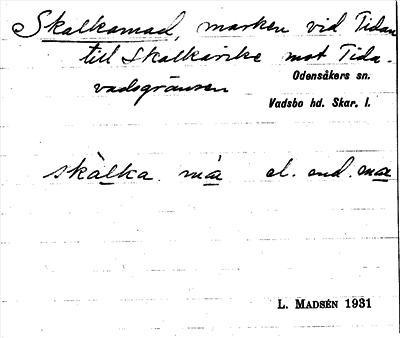 Skalkamad, marken vid Tidan
till Skalkarike mot Tida-
vadsgränsen
Odensåkers sn.
Vadsbo hd. Skar. l.
skàlka má el. end. má
L. MADSÉN 1931